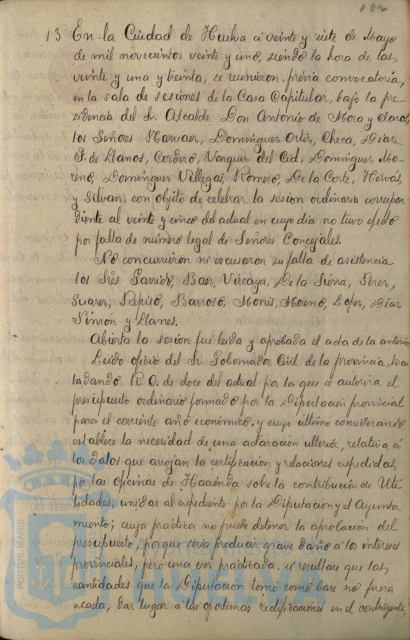 132
13 En la Ciudad de Huelva á veinte y siete de Mayo
de mil novecientos veinte y uno, siendo la hora de las
veinte y una y treinta, se reunieron, prévia convocatoria,
en la sala de sesiones de la Casa Capitular, bajo la pre-
sidencia del Sr. Alcalde Don Antonio de Mora y Claros,
los Señores Narvaez, Dominguez Ortiz, Checa, Diaz
F. de Llanos, Cordero, Vazquez del Cid, Dominguez Mo-
reno, Dominguez Villegas, Romero, De la Corte, Hervás,
y Silvan, con objeto de celebrar la sesion ordinaria correspon
diente al veinte y cinco del actual en cuyo dia no tuvo efecto
por falta de número legal de Señores Concejales.
No concurrieron ni escusaron su falta de asistencia
los Sres Garrido, Baez, Vizcaya, De la Sierra, Perez,
Suarez, Repiso, Barroso, Monis, Moreno, Lopez, Diaz
Pinzon y Llanes.
Abierta la sesion fué leida y aprobada el acta de la anterior
Leido oficio del Sr. Gobernador Civil de la provincia, tras
ladando R. O. de doce del actual por la que se autoriza el
presupuesto ordinario formado por la Diputacion provincial
para el corriente año económico, y cuyo último considerando
establece la necesidad de una aclaracion ulterior, relativa á
los datos que arrojan la certificacion y relaciones expedidas
por las oficinas de Hacienda sobre la contribucion de Uti
lidades, unidas al expediente por la Diputacion y el Ayunta
miento; cuya práctica no puede detener la aprobacion del
presupuesto, porque seria producir grave daño á los intereses
provinciales, pero una vez practicada, si resultare que las
cantidades que la Diputacion tomó como base no fuera
exacta, dar lugar á las oportunas rectificaciones en el contingente,